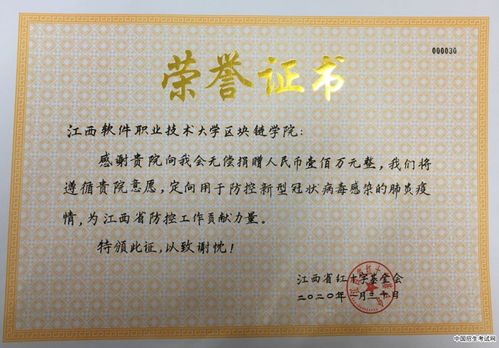 000030
荣誉证书
江西软件职业技术大学区块链学院：
感谢贵院向我会无偿捐赠人民币壹佰万元整，我们将
遵循贵院意愿，定向用于防控新型冠状病毒感染的肺炎疫
情，为江西省防控工作贡献力量。
特颁此证，以致谢忱！
江西省红十字基金会
二〇二〇年 月三十日
中国招生考试网